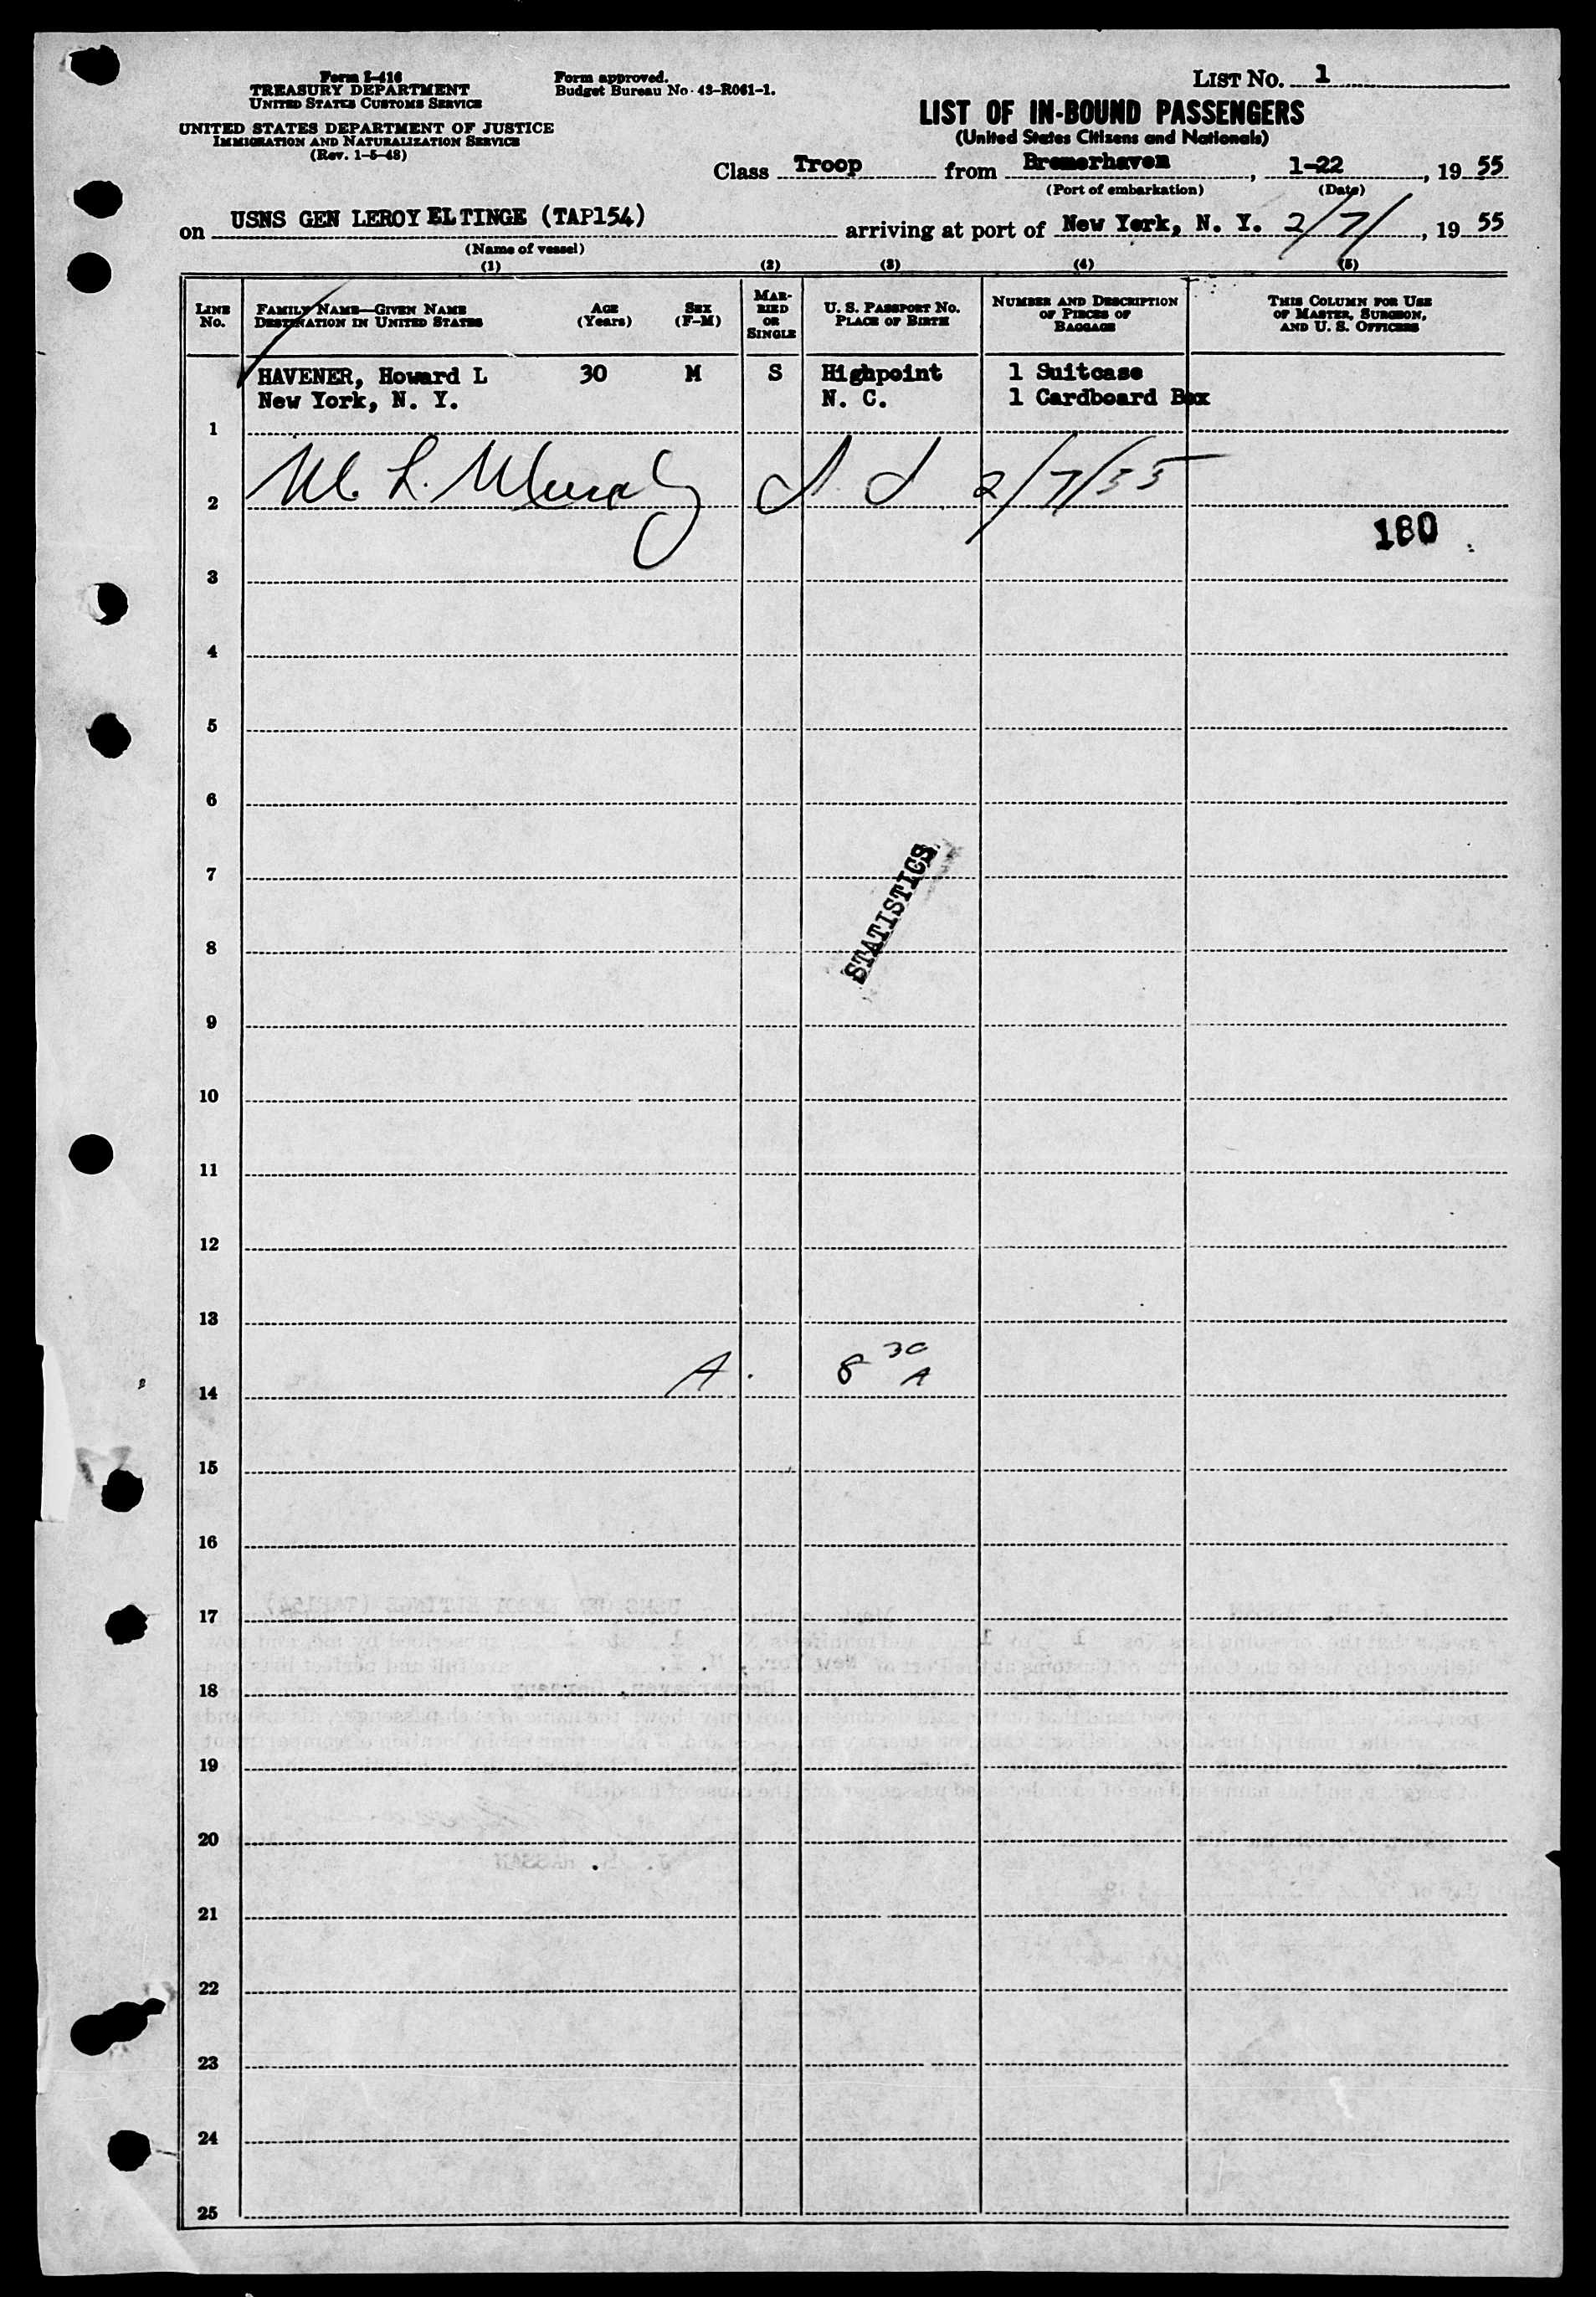 Form I-416
TREASURY DEPARTMENT
UNITED STATES CUSTOMS SERVICE
UNITED STATES DEPARTMENT OF JUSTICE
IMMIGRATION AND NATURALIZATION SERVICE
(Rev. 1-5-48)
Form approved.
Budget Bureau No. 43-R061-1.
LIST No. 1
LIST OF IN-BOUND PASSENGERS
(United States Citizens and Nationals)
Class Troop from Bremerhaven, 1-22, 19 55
(Port of embarkation) (Date)
on USNS GEN LEROY ELTINGE (TAP154) arriving at port of New York, N. Y. 2/7/, 19 55
(Name of vessel)
(1) (2) (3) (4) (5)
LINE No. FAMILY NAME—GIVEN NAME DESTINATION IN UNITED STATES AGE (Years) SEX (F-M) MARRIED OR SINGLE U. S. PASSPORT No. PLACE OF BIRTH NUMBER AND DESCRIPTION OF PIECES OF BAGGAGE THIS COLUMN FOR USE OF MASTER, SURGEON, AND U. S. OFFICERS
HAVENER, Howard L 30 M S Highpoint 1 Suitcase
New York, N. Y. N. C. 1 Cardboard Box
1
2 2/7/55
180
3
4
5
6
7
STATISTICS
8
9
10
11
12
13
14 A. 8 30 A
15
16
17
18
19
20
21
22
23
24
25